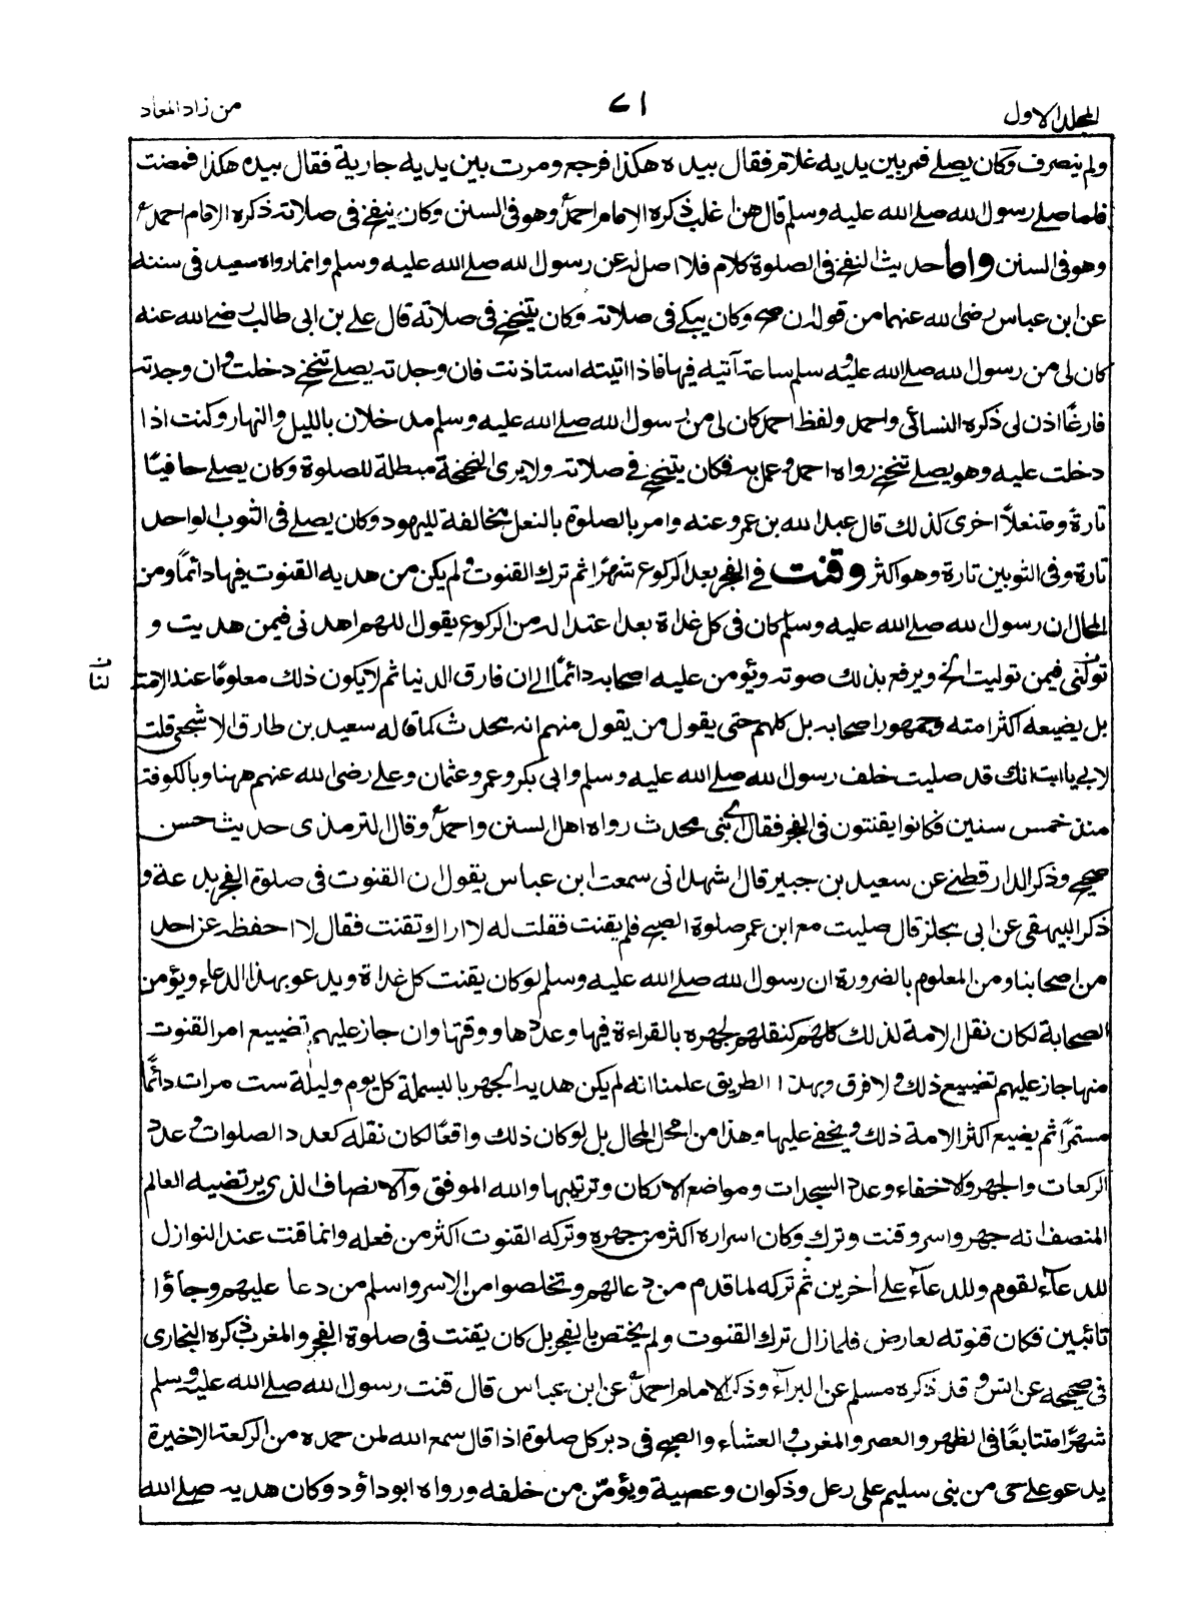 المجلد الاول
٧١
من زاد المعاد
ولم ينصرف وكان يصلے فمر بين يديه غلام فقال بيده هكذا فرجع ومرت بين يديه جارية فقال بيده هكذا فمضت
فلما صلے رسول الله صلے الله عليه وسلم قال هن اغلب ذكره الامام احمدؒ وهو فى السنن وكان ينفخ فى صلاته ذكره الامام احمدؒ
وهو فى السنن واما حديث النفخ فى الصلوة كلام فلا اصل له عن رسول الله صلے الله عليه وسلم وانما رواه سعيد فى سننه
عن ابن عباس رضى الله عنهما من قوله ان صح وكان يبكے فى صلاته وكان يتنحنح فى صلاته قال على بن ابى طالب رضے الله عنه
كان لى من رسول الله صلے الله عليه وسلم ساعة آتيه فيها فاذا اتيته استاذنت فان وجدته يصلے تنحنح دخلت وان وجدته
فارغًا اذن لى ذكره النسائى واحمد ولفظ احمد كان لى من رسول الله صلے الله عليه وسلم مدخلان بالليل والنهار وكنت اذا
دخلت عليه وهو يصلے تنحنح رواه احمد وعمل به فكان يتنحنح فے صلاته ولا يرى النحنحة مبطلة للصلوة وكان يصلے حافيًا
تارة ومتنعلاً اخرى كذلك قال عبد الله بن عمرو عنه وامر بالصلوة بالنعل مخالفة لليهود وكان يصلے فى الثوب الواحد
تارة وفى الثوبين تارة وهو اكثر وقنت فے الفجر بعد الركوع شهرًا ثم ترك القنوت ولم يكن من هديه القنوت فيها دائمًا ومن
المحال ان رسول الله صلے الله عليه وسلم كان فى كل غداة بعد اعتداله من الركوع يقول اللهم اهدنى فيمن هديت و
تولنى فيمن توليت الخ ويرفع بذلك صوته ويؤمن عليه اصحابه دائمًا الے ان فارق الدنيا ثم لا يكون ذلك معلومًا عند الامة
بل يضيعه اكثر امته وجمهور اصحابه بل كلهم حتى يقول من يقول منهم انه محدث كما قاله سعيد بن طارق الاشجعى قلت
لابى يا ابت انك قد صليت خلف رسول الله صلے الله عليه وسلم وابى بكر وعمر وعثمان وعلے رضى الله عنهم ههنا وبالكوفة
منذ خمس سنين فكانوا يقنتون فى الفجر فقال اے بنى محدث رواه اهل السنن واحمدؒ وقال الترمذى حديث حسن
صحيح وذكر الدارقطنے عن سعيد بن جبير قال اشهد انى سمعت ابن عباس يقول ان القنوت فى صلوة الفجر بدعة و
ذكر البيهقى عن ابى مجلز قال صليت مع ابن عمر صلوة الصبح فلم يقنت فقلت له لا اراك تقنت فقال لا احفظه عن احد
من اصحابنا ومن المعلوم بالضرورة ان رسول الله صلے الله عليه وسلم لو كان يقنت كل غداة ويدعو بهذا الدعاء ويؤمن
الصحابة لكان نقل الامة لذلك كلهم كنقلهم لجهره بالقراءة فيها وعددها ووقتها وان جاز عليهم تضييع امر القنوت
منها جاز عليهم تضييع ذلك ولا فرق وبهذا الطريق علمنا انه لم يكن هديه الجهر بالبسملة كل يوم وليلة ست مرات دائمًا
مستمرًا ثم يضيع اكثر الامة ذلك ويخفے عليها وهذا من امحل المحال بل لو كان ذلك واقعًا لكان نقله كعدد الصلوات وعدد
الركعات والجهر والاخفاء وعدد السجدات ومواضع الاركان وترتيبها والله الموفق والانصاف الذى يرتضيه العالم
المنصف انه جهر واسر وقنت وترك وكان اسراره اكثر من جهره وتركه القنوت اكثر من فعله وانما قنت عند النوازل
للدعاء لقوم وللدعاء علے اخرين ثم تركه لما قدم من دعا لهم وتخلصوا من الاسر واسلم من دعا عليهم وجاؤا
تائبين فكان قنوته لعارض فلما زال ترك القنوت ولم يختص بالفجر بل كان يقنت فى صلوة الفجر والمغرب ذكره البخارى
فى صحيحه عن انس وقد ذكره مسلم عن البراء وذكر الامام احمدؒ عن ابن عباس قال قنت رسول الله صلے الله عليه وسلم
شهرًا متتابعًا فى الظهر والعصر والمغرب والعشاء والصبح فى دبر كل صلوة اذا قال سمع الله لمن حمده من الركعة الاخيرة
يدعو علے حى من بنى سليم على رعل وذكوان وعصية ويؤمن من خلفه ورواه ابوداؤد وكان هديه صلے الله